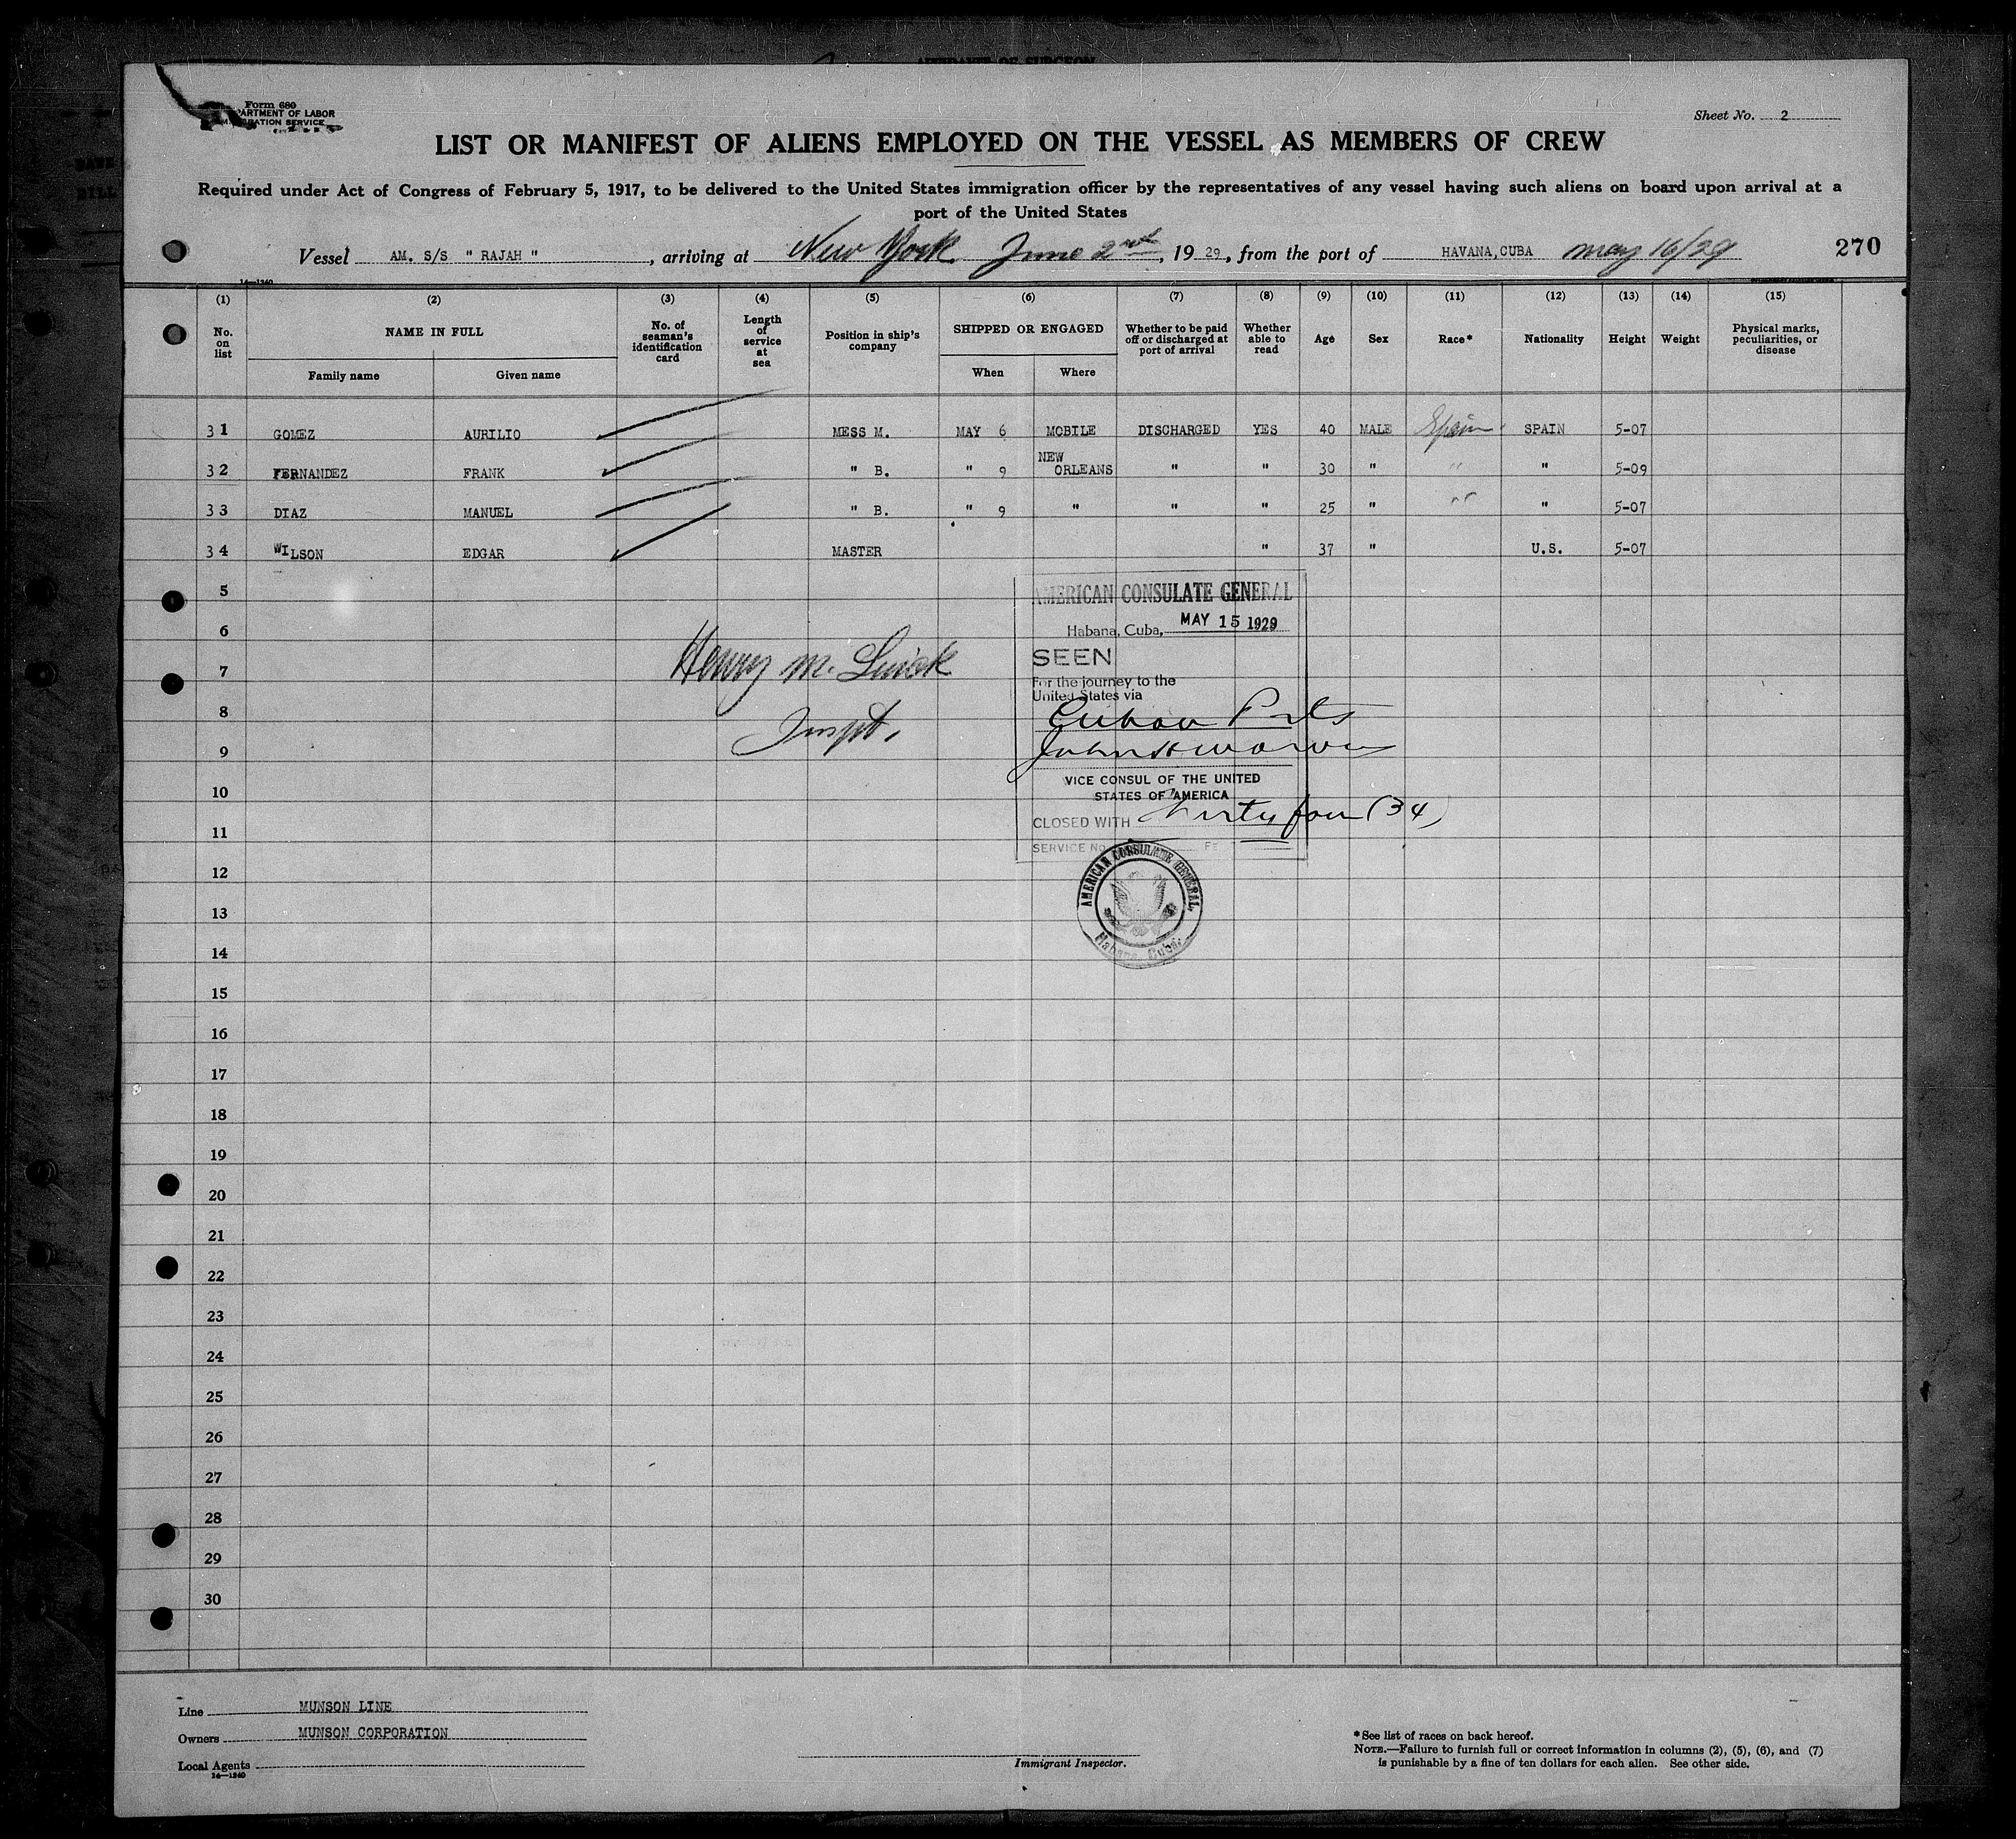 AFFIDAVIT OF SURGEON
Form 680
DEPARTMENT OF LABOR
IMMIGRATION SERVICE
Sheet No. 2
LIST OR MANIFEST OF ALIENS EMPLOYED ON THE VESSEL AS MEMBERS OF CREW
Required under Act of Congress of February 5, 1917, to be delivered to the United States immigration officer by the representatives of any vessel having such aliens on board upon arrival at a
port of the United States
Vessel AM. S/S " RAJAH ", arriving at New York June 2nd, 19 29, from the port of HAVANA,CUBA may 16/29 270
14—1240
(1) (2) (3) (4) (5) (6) (7) (8) (9) (10) (11) (12) (13) (14) (15)
No. on list NAME IN FULL No. of seaman's identification card Length of service at sea Position in ship's company SHIPPED OR ENGAGED Whether to be paid off or discharged at port of arrival Whether able to read Age Sex Race* Nationality Height Weight Physical marks, peculiarities, or disease
Family name Given name When Where
31 GOMEZ AURILIO MESS M. MAY 6 MOBILE DISCHARGED YES 40 MALE Spain SPAIN 5-07
32 FERNANDEZ FRANK " B. " 9 NEW ORLEANS " " 30 " " " 5-09
33 DIAZ MANUEL " B. " 9 " " " 25 " " " 5-07
34 WILSON EDGAR MASTER " 37 " U.S. 5-07
5
6
7
8
9
10
11
12
13
14
15
16
17
18
19
20
21
22
23
24
25
26
27
28
29
30
Henry M.
Inspt.
AMERICAN CONSULATE GENERAL
Habana, Cuba, MAY 15 1929
SEEN
For the journey to the
United States via
Cuban Ports
VICE CONSUL OF THE UNITED
STATES OF AMERICA
CLOSED WITH thirty four (34)
SERVICE No.
AMERICAN CONSULATE GENERAL,
Habana, Cuba.
Line MUNSON LINE
Owners MUNSON CORPORATION
Local Agents
14—1240
Immigrant Inspector.
*See list of races on back hereof.
NOTE.—Failure to furnish full or correct information in columns (2), (5), (6), and (7)
is punishable by a fine of ten dollars for each alien. See other side.